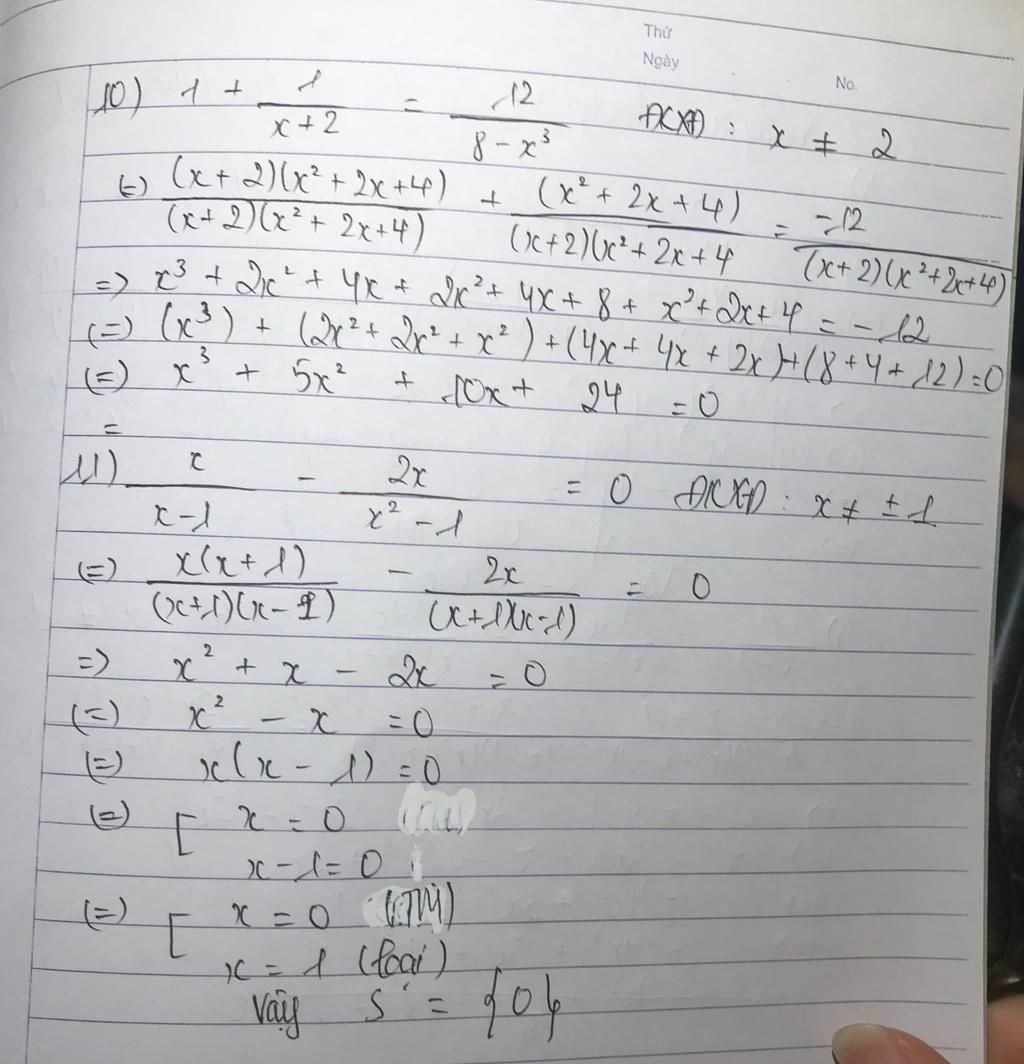 Thứ
Ngày
No.
10) 1 + 1/(x+2) = 12/(8-x³) ĐKXĐ: x ≠ 2
(=) (x+2)(x²+2x+4)/(x+2)(x²+2x+4) + (x²+2x+4)/(x+2)(x²+2x+4 = -12/(x+2)(x²+2x+4)
=> x³ + 2x² + 4x + 2x² + 4x + 8 + x² + 2x + 4 = -12
(=) (x³) + (2x² + 2x² + x²) + (4x + 4x + 2x) + (8 + 4 + 12) = 0
(=) x³ + 5x² + 10x + 24 = 0
=
11) x/(x-1) - 2x/(x²-1) = 0 ĐKXĐ: x ≠ ±1
(=) x(x+1)/(x+1)(x-1) - 2x/(x+1)(x-1) = 0
=> x² + x - 2x = 0
(=) x² - x = 0
(=) x(x - 1) = 0
(=) [ x = 0
x - 1 = 0
(=) [ x = 0 (TM)
x = 1 (loại)
Vậy S = {0}